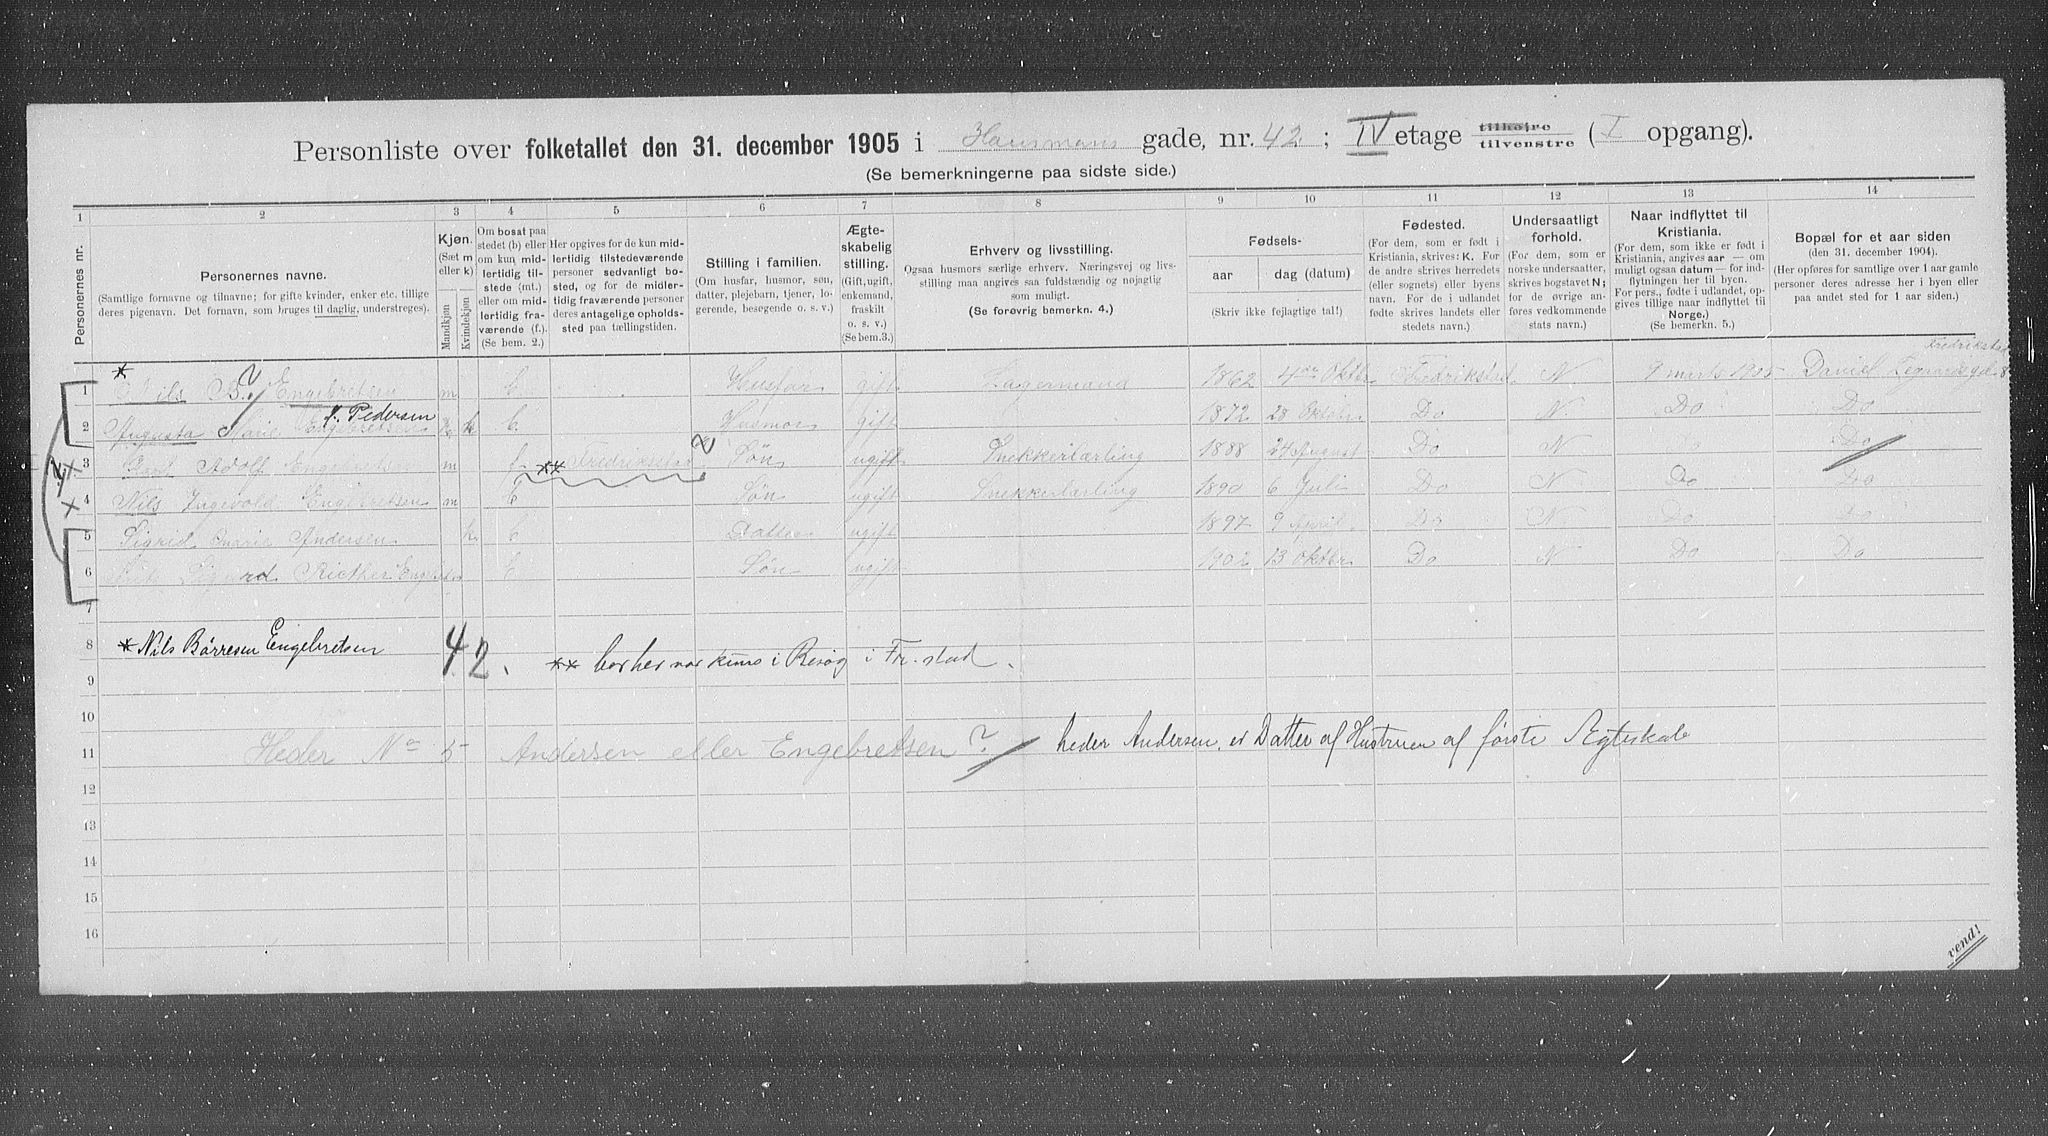 Personliste over folketallet den 31. december 1905 i Hausmans gade, nr. 42; IV etage tilhøire tilvenstre (I opgang).
(Se bemerkningerne paa sidste side.)
1 2 3 4 5 6 7 8 9 10 11 12 13 14
Personernes nr.
Personernes navne.
(Samtlige fornavne og tilnavne; for gifte kvinder, enker etc. tillige deres pigenavn. Det fornavn, som bruges til daglig, understreges).
Kjøn.
(Sæt m eller k)
Mandkjøn
Kvindekjøn
Om bosat paa stedet (b) eller om kun midlertidig tilstede (mt.) eller om midlertidig fraværende (f.) (Se bem. 2.)
Her opgives for de kun midlertidig tilstedeværende personer sedvanlig bosted, og for de midlertidig fraværende personer deres antagelige opholdssted paa tællingstiden.
Stilling i familien.
(Om husfar, husmor, søn, datter, plejebarn, tjener, logerende, besøgende o. s. v.)
Ægteskabelig stilling.
(Gift, ugift, enkemand, fraskilt o. s. v.)
(Se bem.3.)
Erhverv og livsstilling.
Ogsaa husmors særlige erhverv. Næringsvej og livsstilling maa angives saa fuldstændig og nøjagtig som muligt.
(Se forøvrig bemerkn. 4.)
Fødsels-
aar
dag (datum)
(Skriv ikke fejlagtige tal!)
Fødested.
(For dem, som er født i Kristiania, skrives: K. For de andre skrives herredets (eller sognets) eller byens navn. For de i udlandet fødte skrives landets eller stedets navn.)
Undersaatligt forhold.
(For dem, som er norske undersaatter, skrives bogstavet N; for de øvrige anføres vedkommende stats navn.)
Naar indflyttet til Kristiania.
(For dem, som ikke er født i Kristiania, angives aar — om muligt ogsaa datum — for indflytningen her til byen. For pers., fødte i udlandet, opgives tillige naar indflyttet til Norge.)
(Se bemerkn. 5.)
Bopæl for et aar siden
(den 31. december 1904).
(Her opføres for samtlige over 1 aar gamle personer deres adresse her i byen eller paa andet sted for 1 aar siden.)
*
Fredrikstad
1 Nils B. ? Engebretsen m b Husfar gift Lagermand 1862 4de Oktbr Fredrikstad N 9 marts 1905 Daniel
f. Pedersen
2 Augusta Marie Engebretsen k b. Husmor gift 1872 28 Oktbr Do N. Do Do
3 Adolf Engebretsen m f. ** Fredrikstad ? Søn ugift Snekkerlærling 1888 24 August Do N Do
4 Nils Ingevold Engebretsen m b Søn ugift Snekkerlærling 1890 6 Juli Do N Do Do
5 Sigrid Marie Andersen k b Datter ugift 1897 9 April Do N. Do Do
6 Sigurd b Søn ugift 1902 13 Oktbr Do N Do Do
7
8 * Nils Børresen Engebretsen 42. ** bor her var kuns i Besøg i Fr.stad.
9
10
11 Heder No 5 Andersen eller Engebretsen? heder Andersen, er Datter af Hustruen af første Ægteskab
12
13
14
15
16
vend!